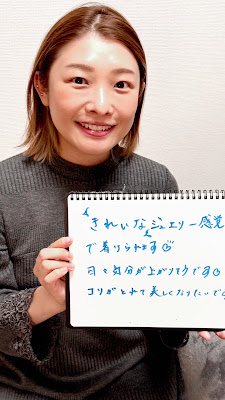 "きれいなジュエリー感覚
で着けられます☺
日々気分が上がりそうです☺
コリがとれて美しくなりたいで